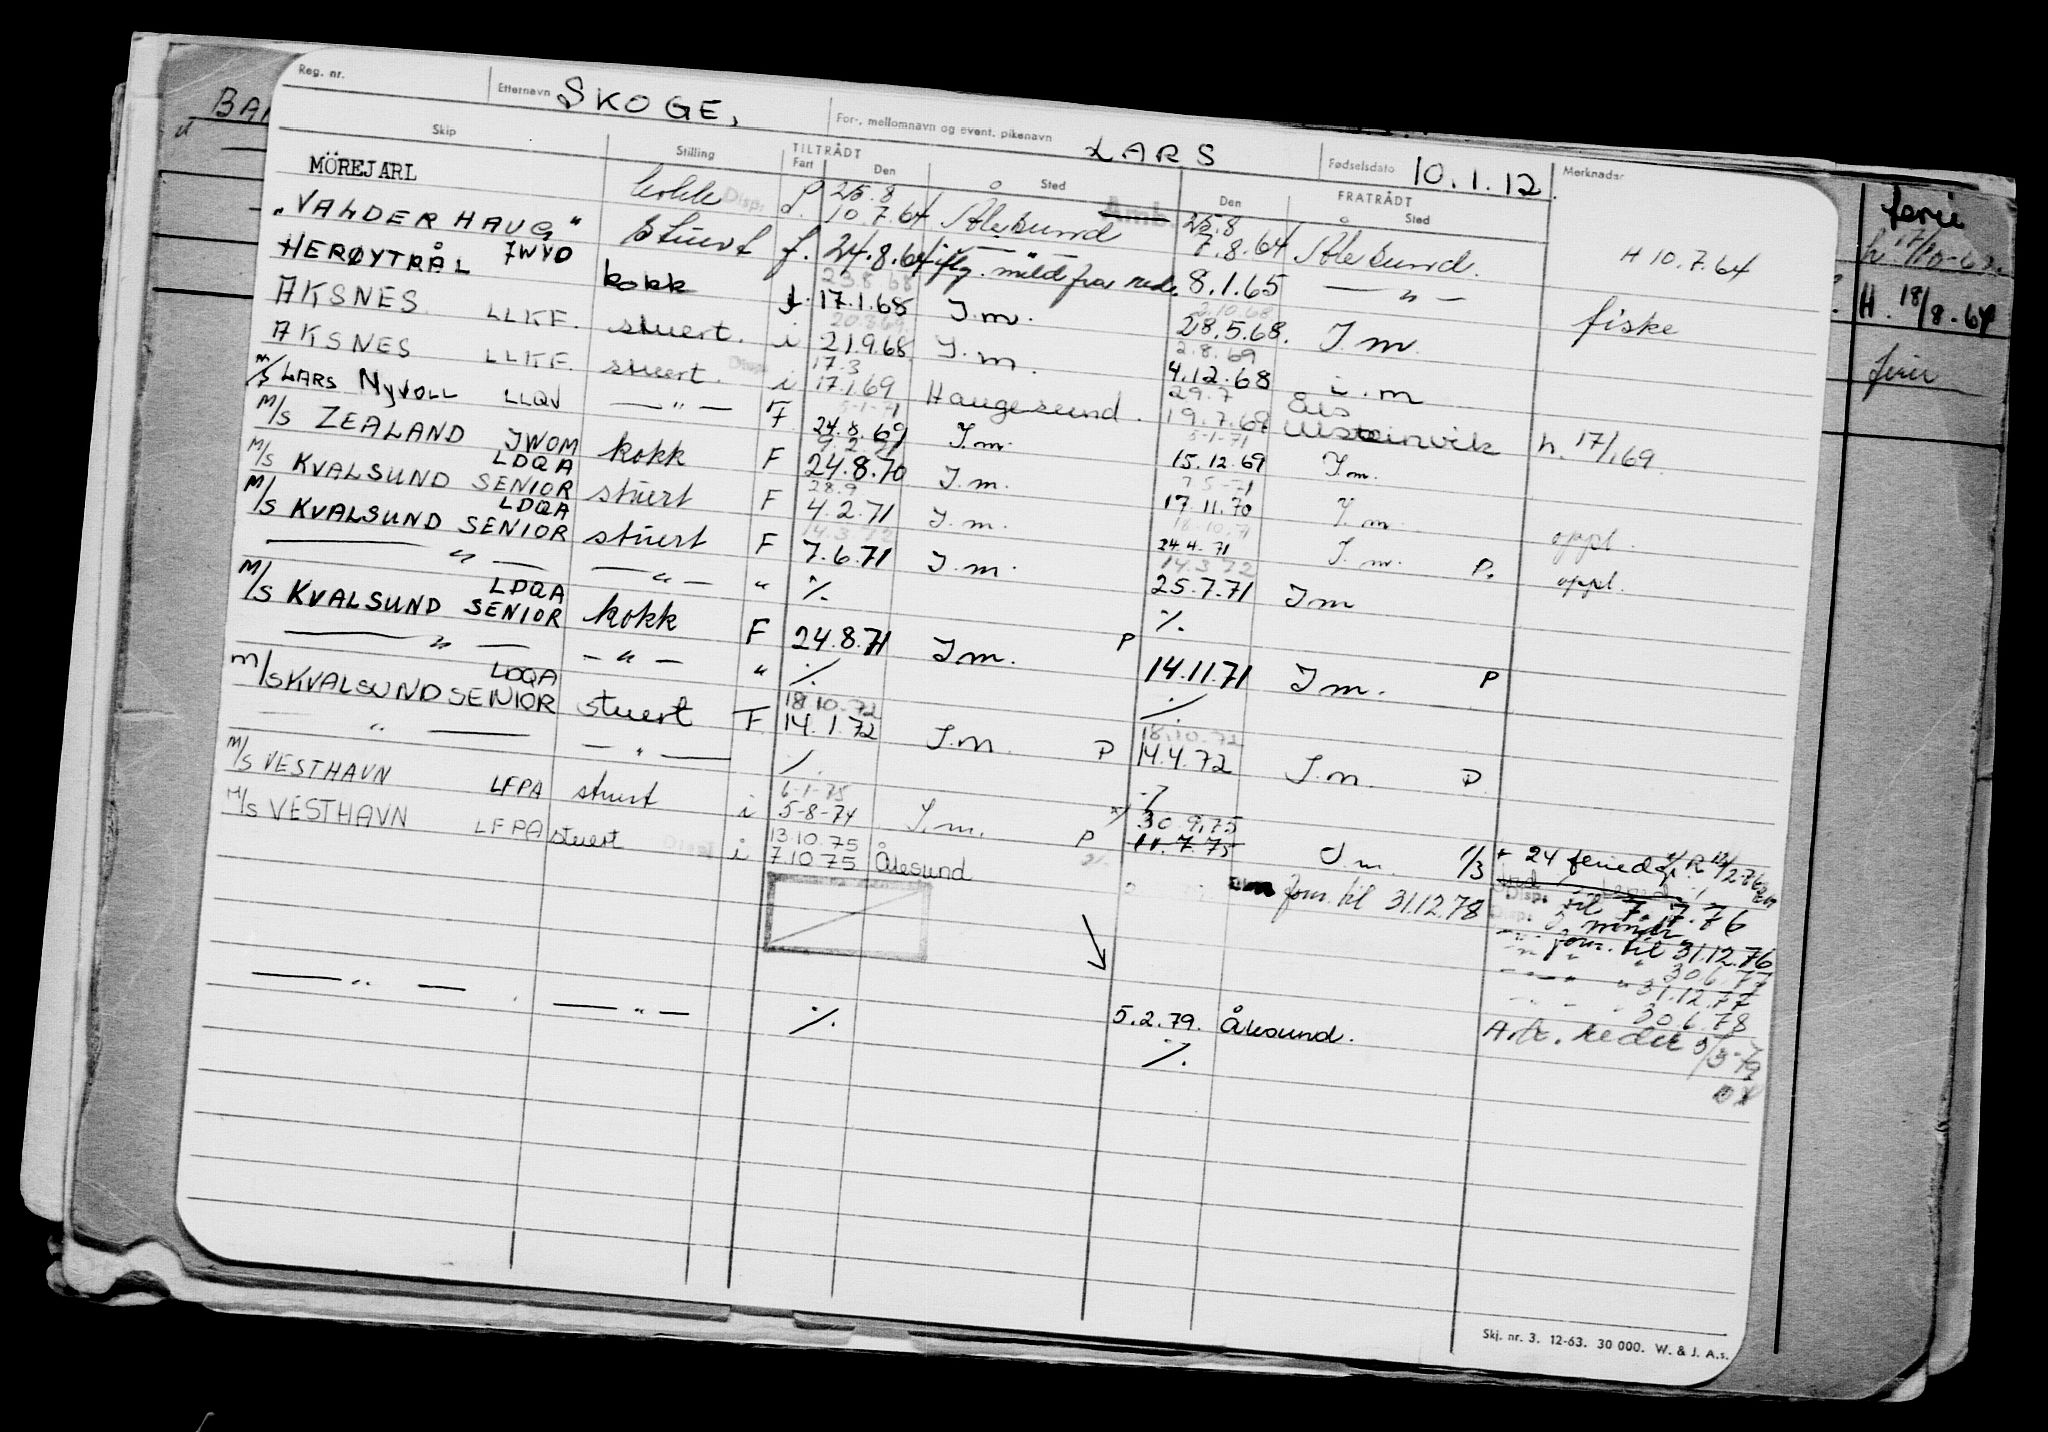 Reg. nr. Etternavn SKOGE, For-, mellomnavn og event. pikenavn LARS Fødselsdato 10.1.12. Merknader
Skip Stilling TILTRÅDT FRATRÅDT
Fart Den Sted Den Sted
25.8 25.8
MÖREJARL kokk 10.7.64 Ålesund 7.8.64 Ålesund. H 10.7.64
"VALDERHAUG" JWVD Stuert f. 24.8.64 iflg. meld fra rede. 8.1.65 — " — fiske
23.8.68 2.10.68
HERØYTRÅL kokk 17.1.68 I.m. 28.5.68. I.m.
20.3.69 2.8.69
AKSNES LLKF. stuert. i 21.9.68 I.m. 4.12.68 i.m
17.3 29.7
AKSNES LLKF. stuert. i 17.1.69 Haugesund. 19.7.69 Ulsteinvik h. 17/1.69.
5-1-71 5-1-71
M/S LARS NYVOLL LLQV — " — F 24.8.69 I.m. 15.12.69 I.m.
7-5-71
M/S ZEALAND JWOM kokk F 24.8.70 I.m. 17.11.70 I.m. oppl.
LDQA 28.9 18.10.71
M/S KVALSUND SENIOR stuert F 4.2.71 I.m. 24.4.71 I.m. P. oppl.
LDQA 14.3.72 14.3.72
M/S KVALSUND SENIOR stuert F 7.6.71 I.m. 25.7.71 I m
— " — — " — " ./. ./.
LDQA
M/S KVALSUND SENIOR kokk F 24.8.71 I m. P 14.11.71 I m. P
— " — — " — " ./. ./.
LDQA 18.10.72 18.10.72
M/S KVALSUND SENIOR stuert F 14.1.72 I.m. P 14.4.72 I.m. P
" — — " — ./. ./.
6-1-75 30.9.75
M/S VESTHAVN LFPA stuert i 5-8-74 I.m. P 11.7.75 I.m. 1/3 + 24 feriedg.
13.10.75
M/S VESTHAVN LFPA stuert i 7.10.75 Ålesund forn. til 31.12.78 til 7.7.76
forn. til 31.12.76
" 30.6.77
" 31.12.77
" 30.6.78
— " — — " — ./. 5.2.79. Ålesund. reder 3/3-79
./.
Skj. nr. 3. 12-63. 30 000. W. & J. A.s.
ferie
H. 18/8.64
ferie